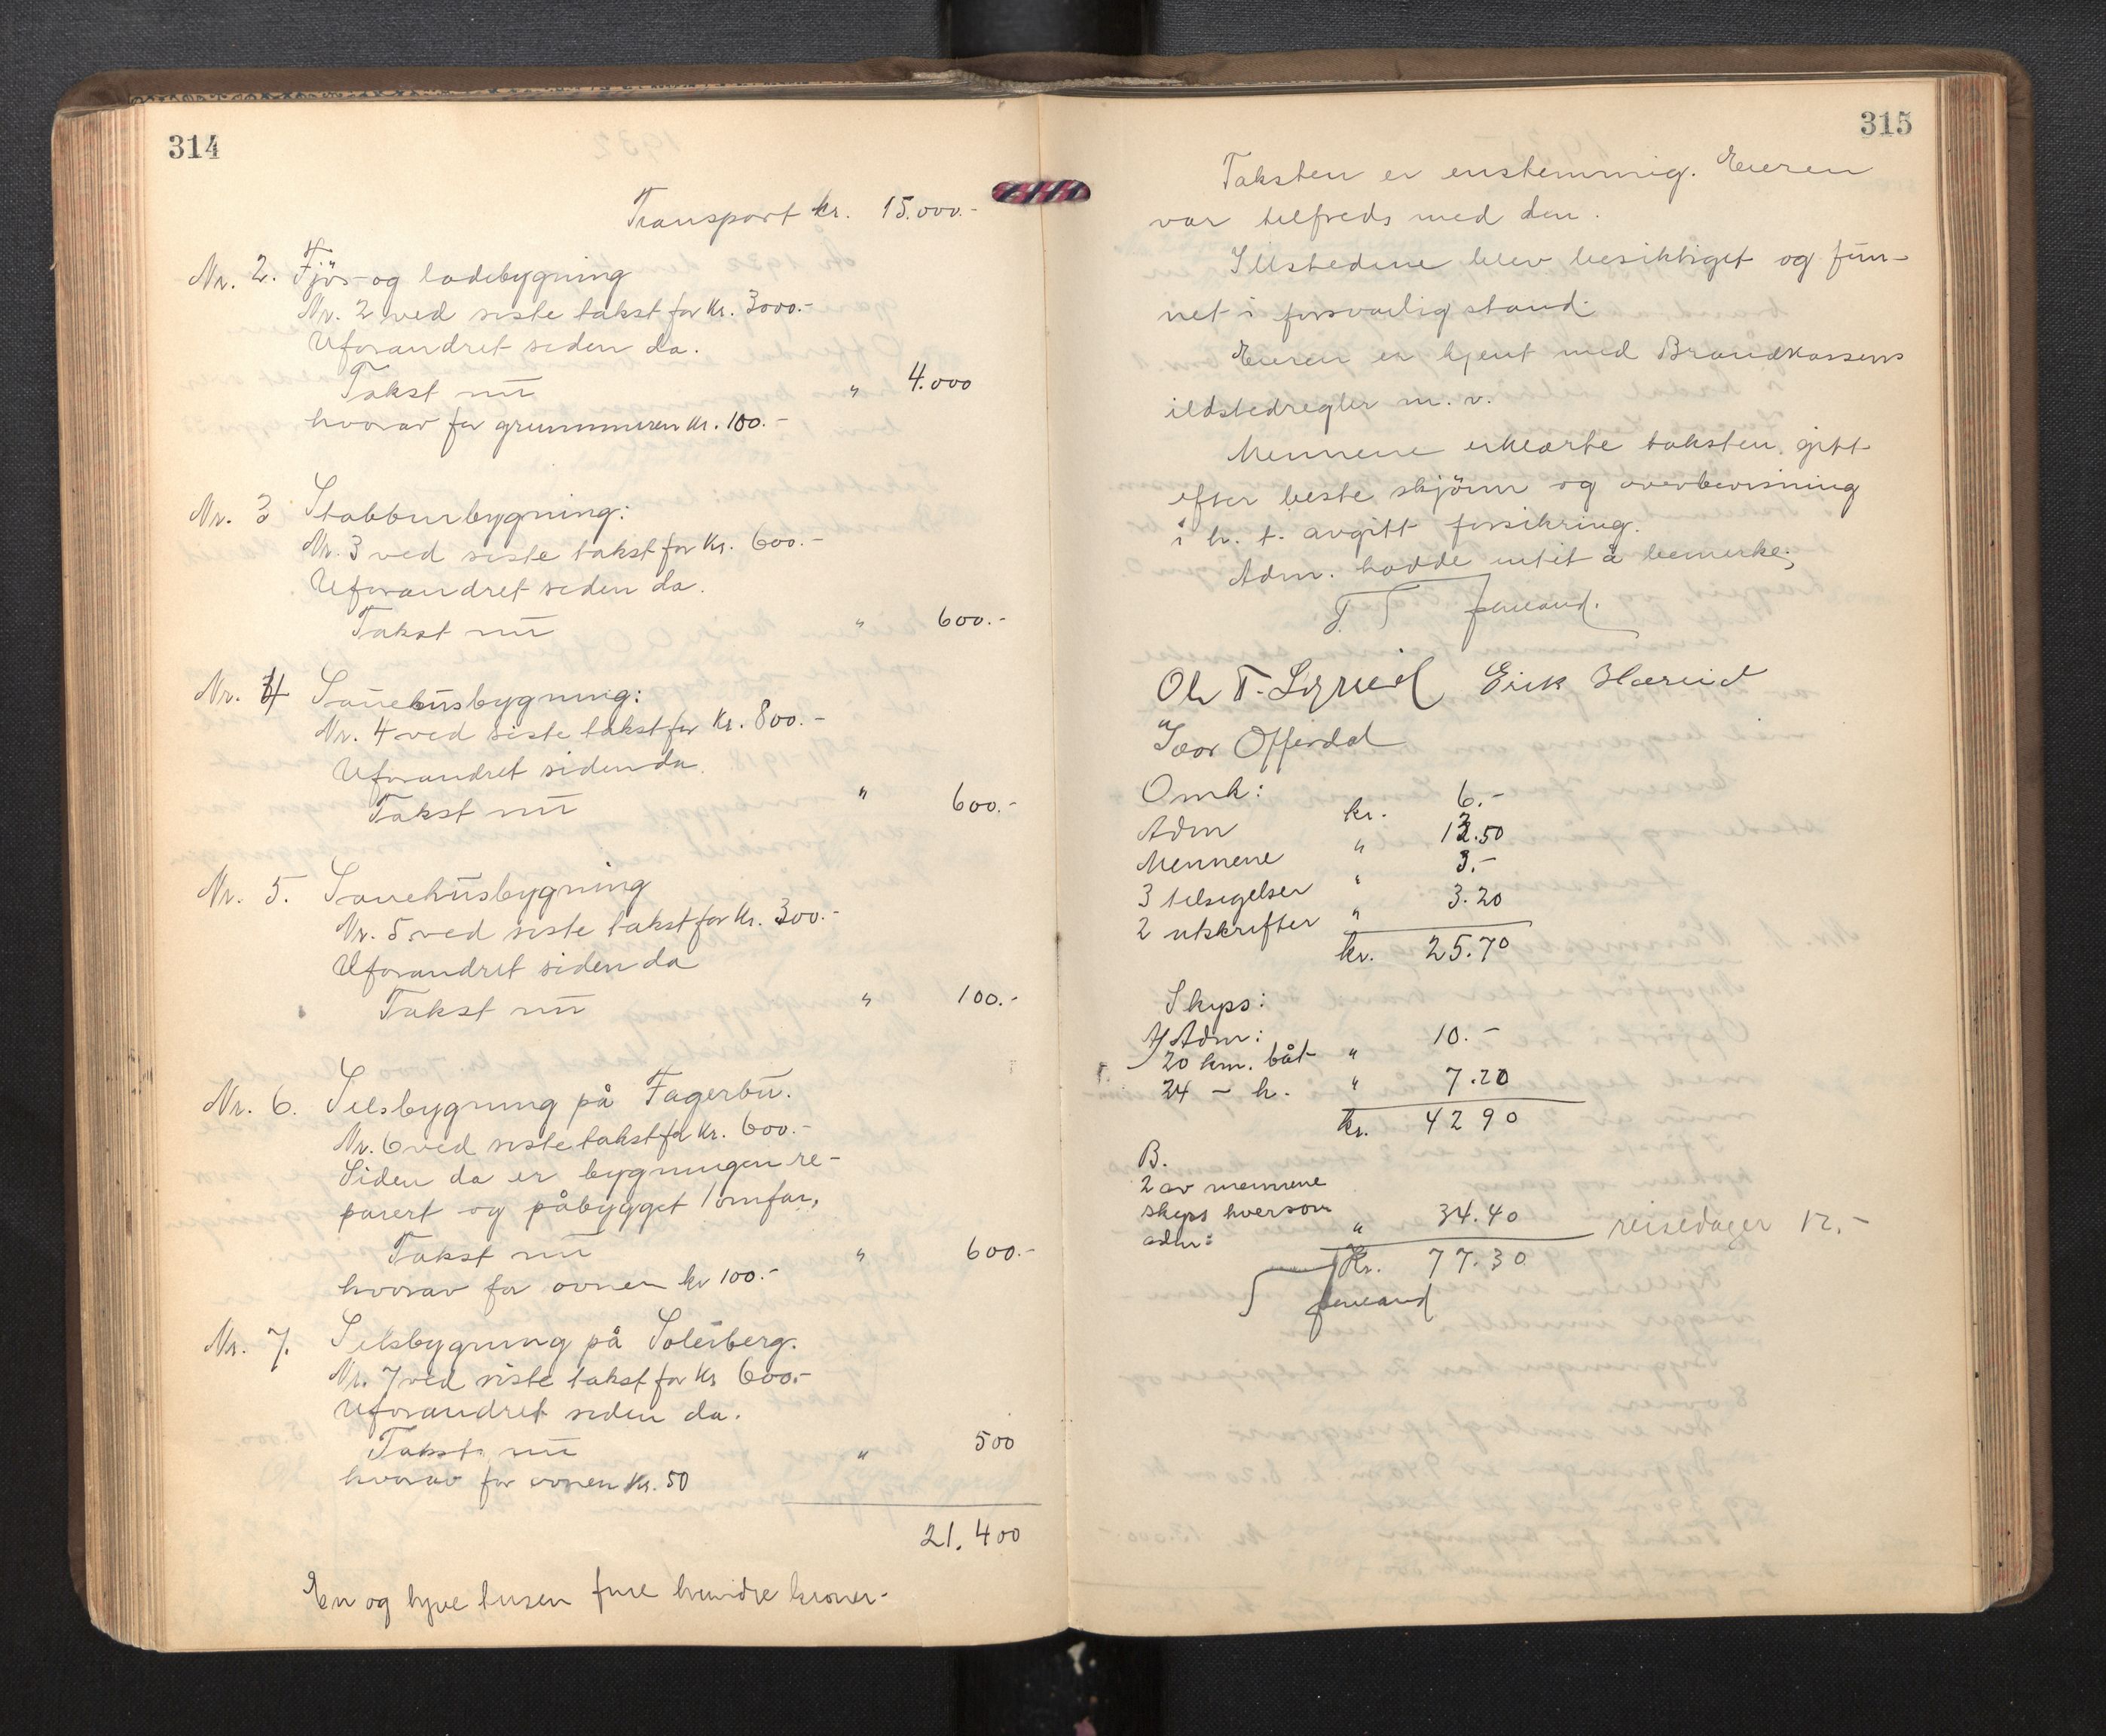 314
Transport kr. 15.000.-
Nr. 2. Fjös- og ladebygning
Nr. 2 ved siste takst for Kr. 3000.-
Uforandret siden da.
Takst nu " 4.000
hvorav for grunnmuren kr. 100.-
Nr. 3 Stabburbygning:
Nr. 3 ved siste takst for Kr. 600.-
Uforandret siden da.
Takst nu " 600.-
Nr. 4 Sauehusbygning:
Nr. 4 ved siste takst for Kr. 800.-
Uforandret siden da.
Takst nu " 600.-
Nr. 5. Sauehusbygning
Nr. 5 ved siste takst for Kr. 300.-
Uforandret siden da
Takst nu " 100.-
Nr. 6. Selsbygning på Fagerbu.
Nr. 6 ved siste takst for Kr. 600.-
Siden da er bygningen re-
parert og påbygget 1 omfar,
Takst nu " 600.-
hvorav for ovnen kr 100.-
Nr. 7. Selsbygning på Soleiberg.
Nr. 7 ved siste takst for Kr 600.-
Uforandret siden da.
Takst nu " 500
hvorav for ovnen Kr. 50
21.400
En og tyve tusen fire hundre kroner-
315
Taksten er enstemmig. Eieren
var tilfreds med den.
Ildstedene blev besiktiget og fun-
net i forsvarlig stand.
Eieren er kjent med Brandkassens
ildstedregler m. v.
Mennene erklærte taksten gitt
efter beste skjönn og overbevisning
i h. t. avgitt forsikring.
Adm. hadde intet å bemerke;
Erik Hæreid
Ivar Offerdal
Omk:
Adm kr. 6.-
Mennene " 13.50
3 tilsigelser " 3.-
2 utskrifter " 3.20
kr. 25.70
Skyss:
A/ Adm:
20 km. båt " 10.-
24 - h. " 7.20
kr. 42 90
B.
2 av mennene
skyss hver som
adm: " 34.40 reisedager 12.-
Kr. 77.30